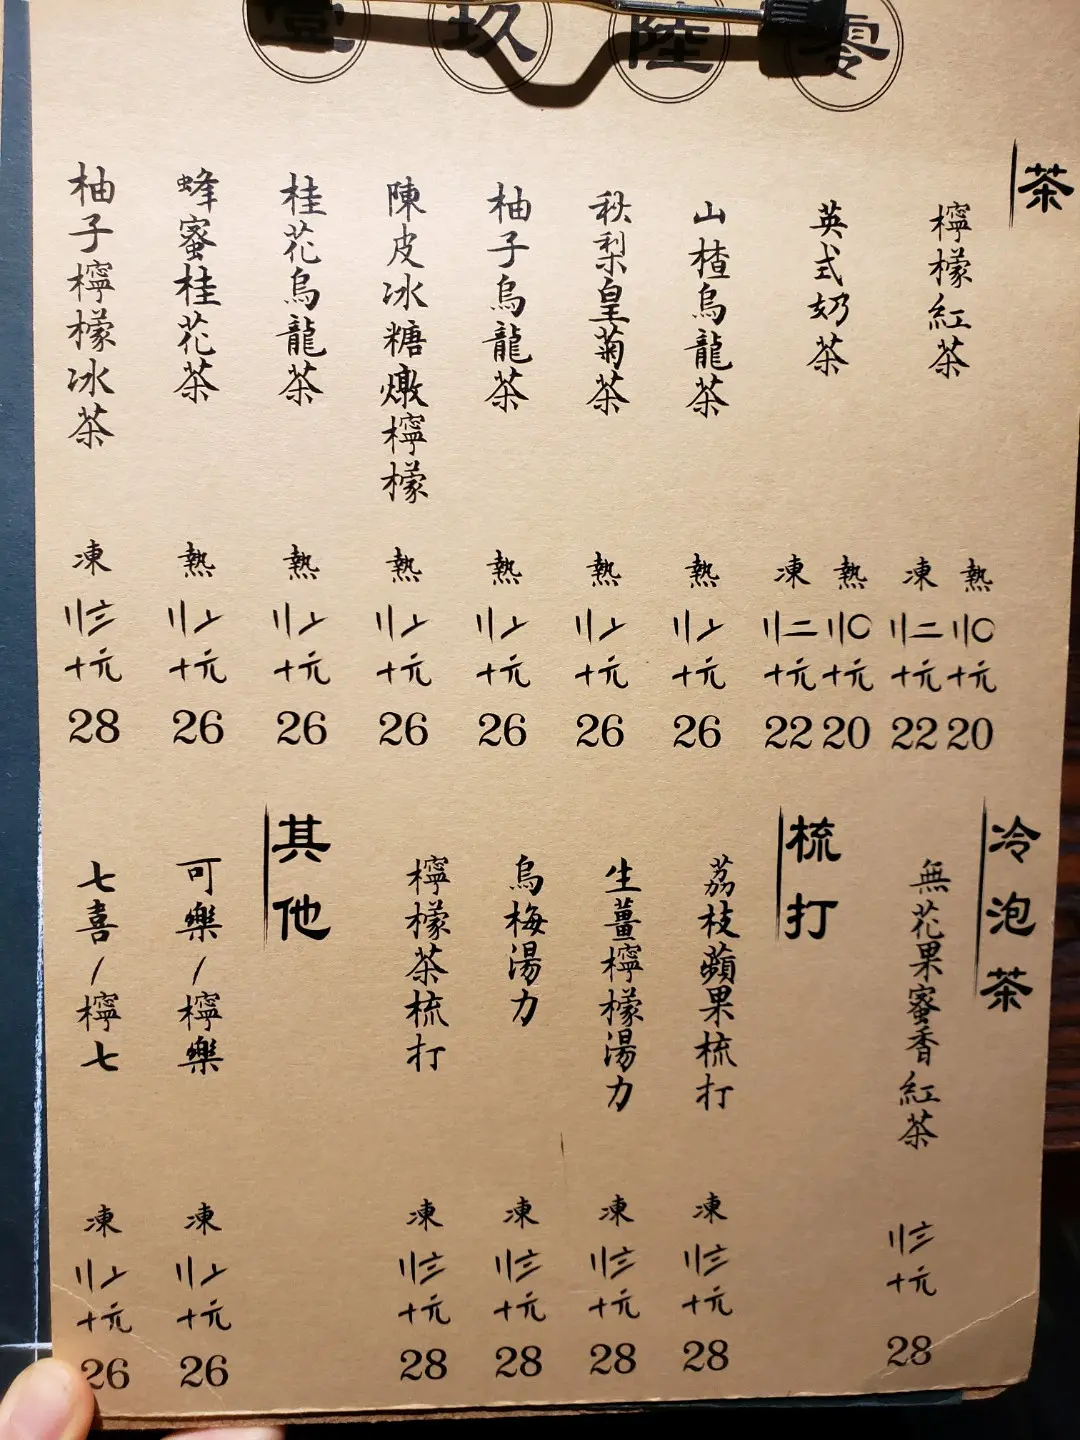 壹玖陸零
茶
檸檬紅茶
熱 〢〇十元 20
凍 〢二十元 22
英式奶茶
熱 〢〇十元 20
凍 〢二十元 22
山楂烏龍茶
熱 〢〦十元 26
秋梨皇菊茶
熱 〢〦十元 26
柚子烏龍茶
熱 〢〦十元 26
陳皮冰糖燉檸檬
熱 〢〦十元 26
桂花烏龍茶
熱 〢〦十元 26
蜂蜜桂花茶
熱 〢〦十元 26
柚子檸檬冰茶
凍 〢〨十元 28
冷泡茶
無花果蜜香紅茶
〢〨十元 28
梳打
荔枝蘋果梳打
凍 〢〨十元 28
生薑檸檬湯力
凍 〢〨十元 28
烏梅湯力
凍 〢〨十元 28
檸檬茶梳打
凍 〢〨十元 28
其他
可樂/檸樂
凍 〢〦十元 26
七喜/檸七
凍 〢〦十元 26